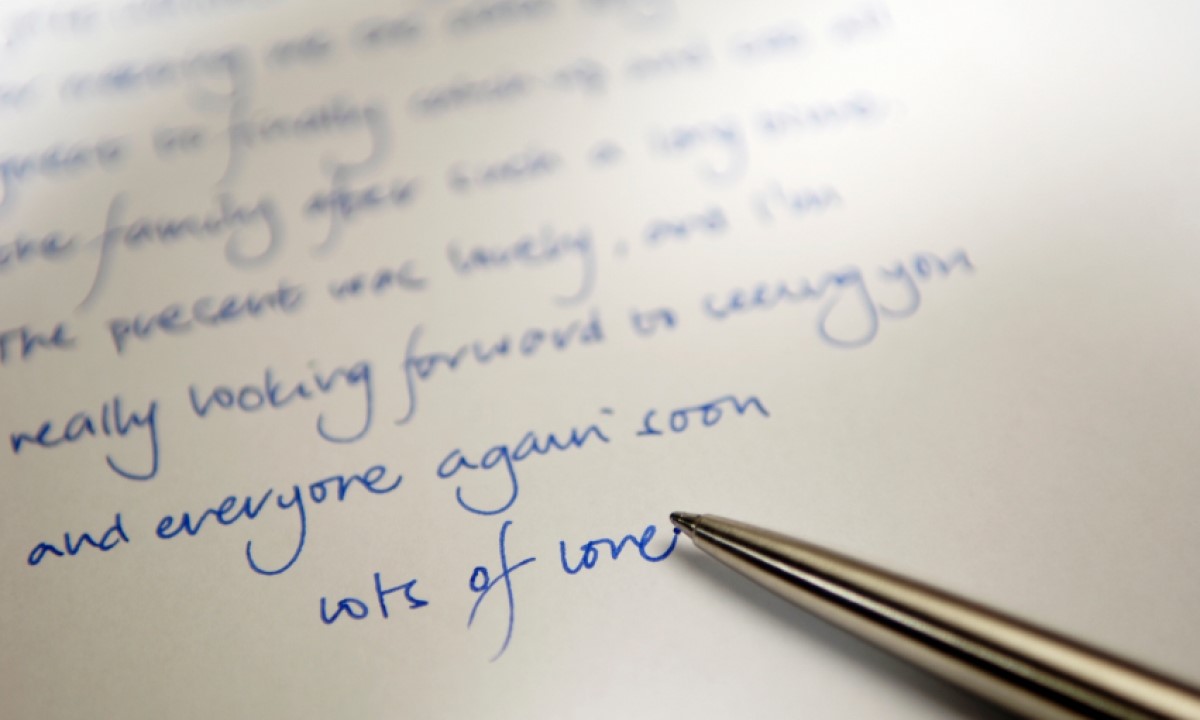 great to finally
the family after such a long time.
The present was lovely, and I'm
really looking forward to seeing you
and everyone again soon
lots of love